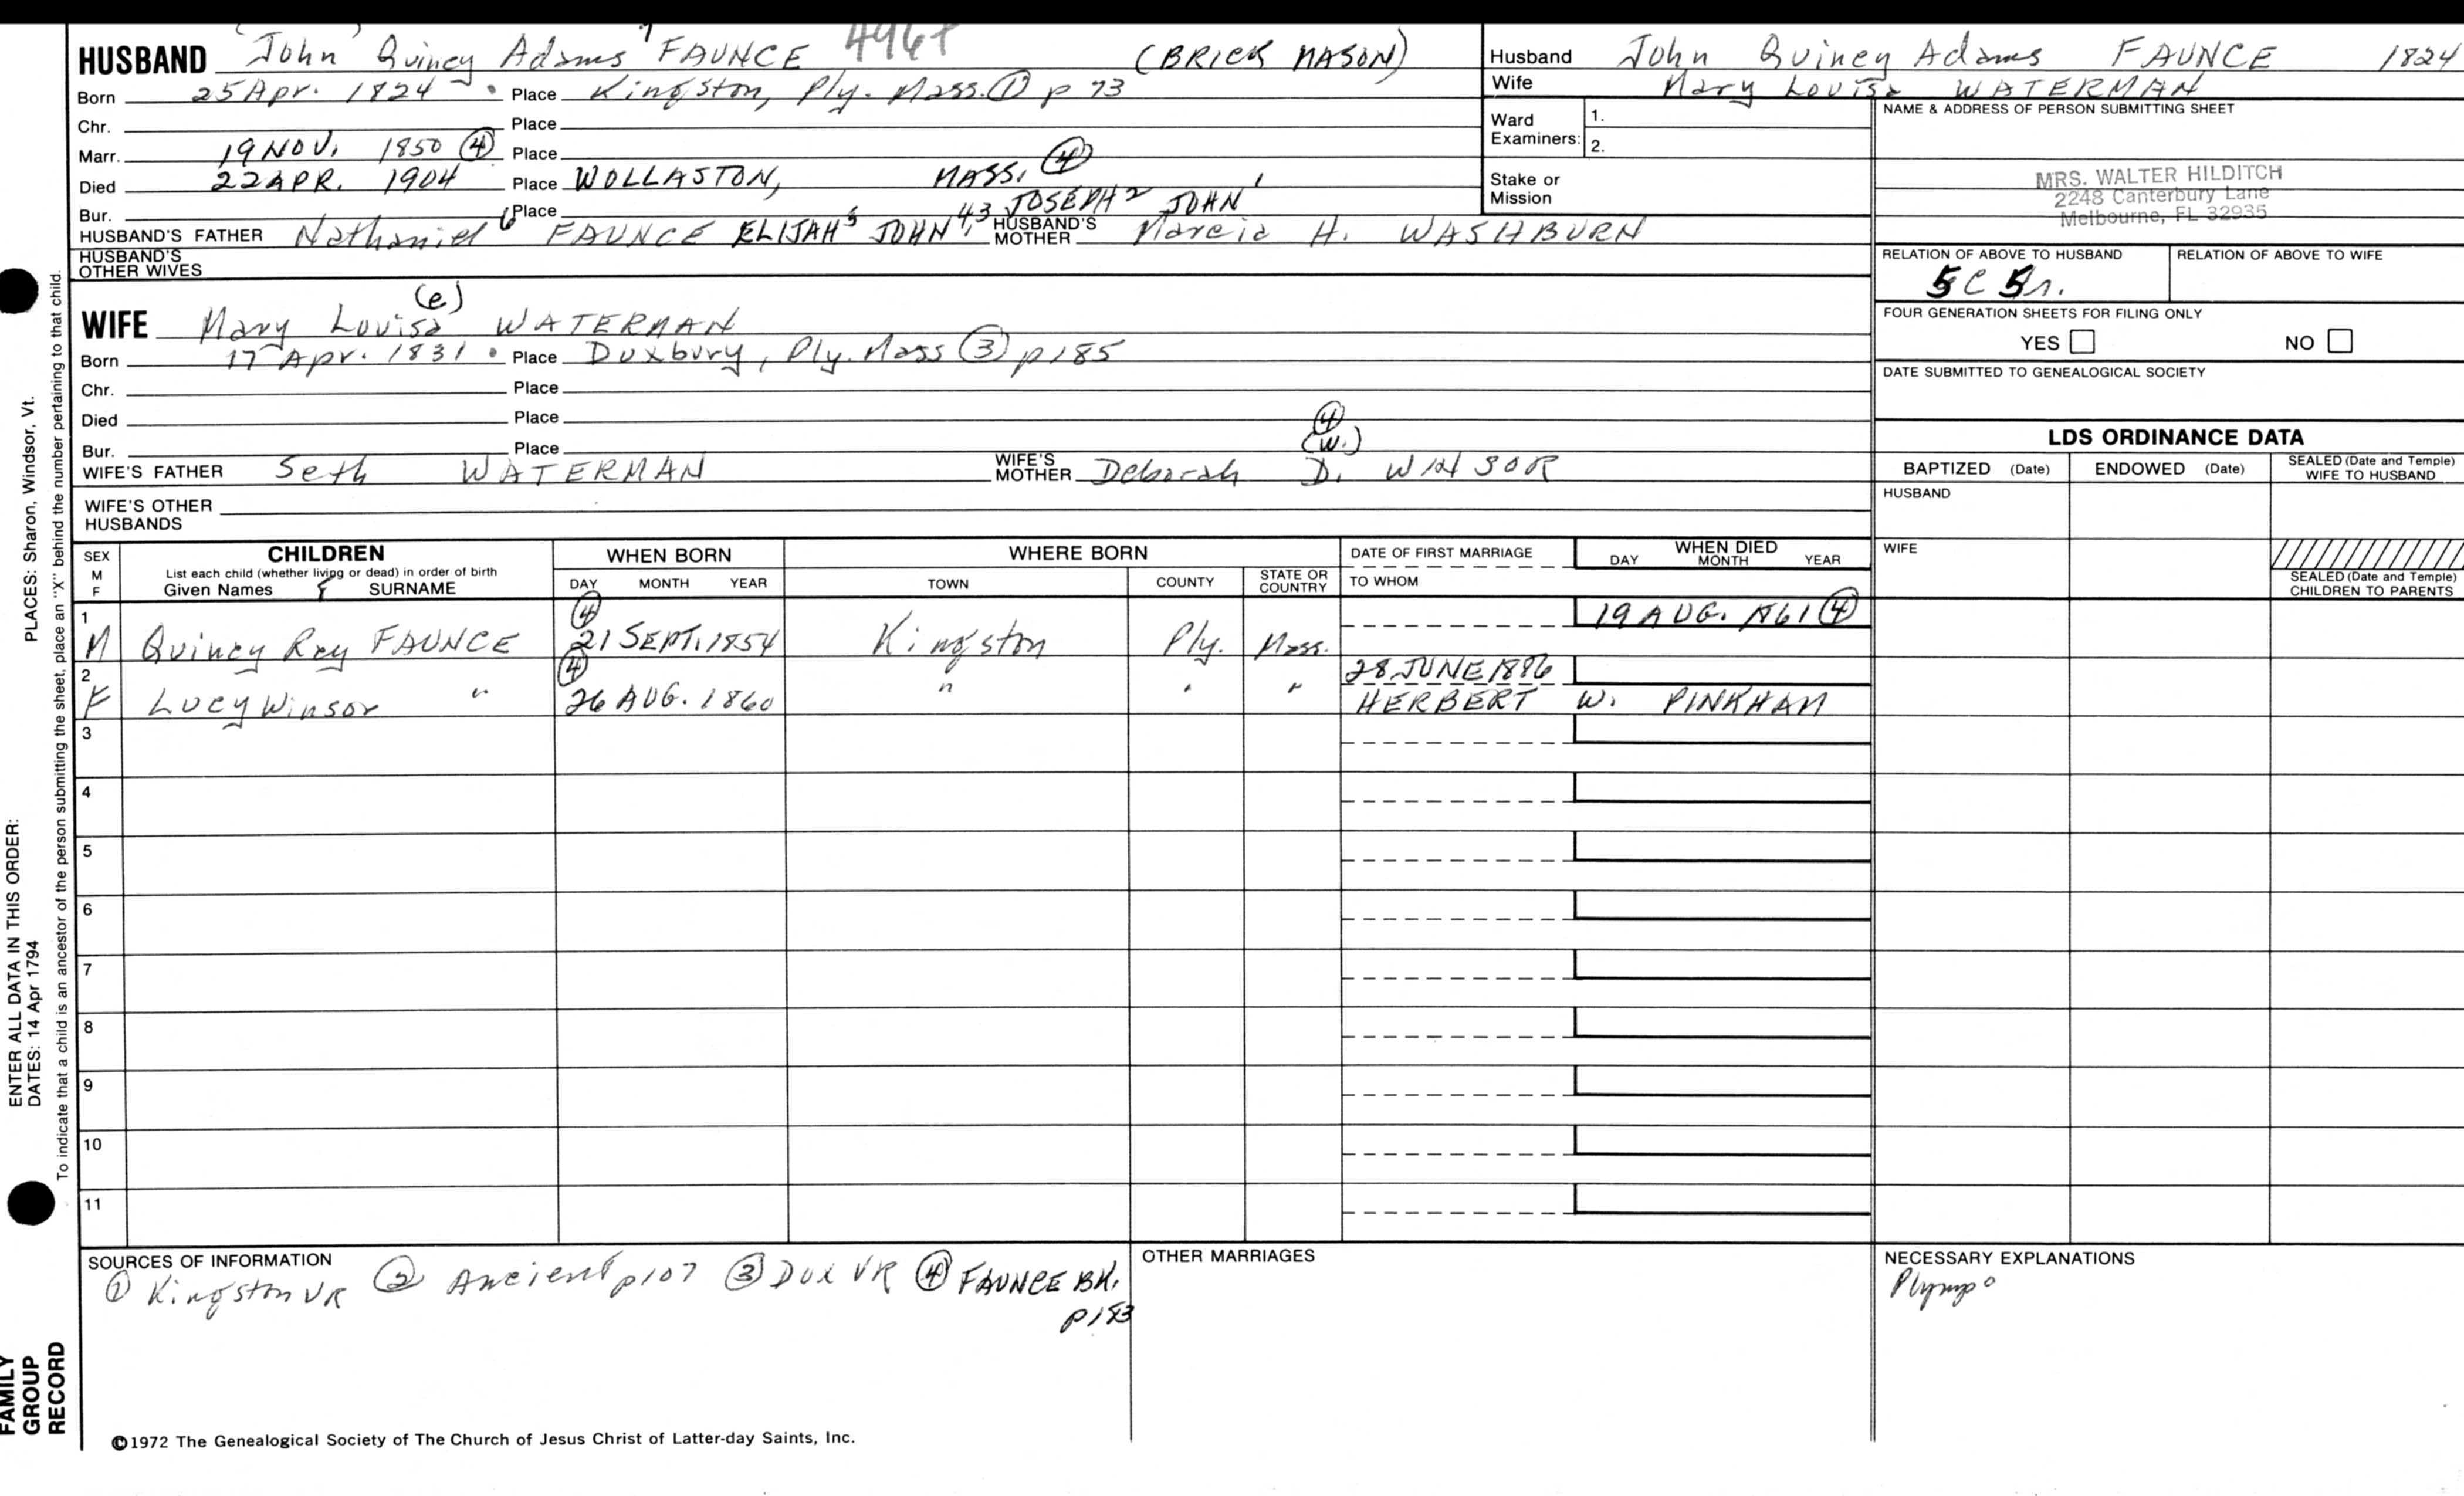 HUSBAND "John" Quincy Adams 7 FAUNCE 496+ (BRICK MASON)
Born 25 Apr. 1824 Place Kingston, Ply. Mass. ① p 73
Chr. Place
Marr. 19 NOV. 1850 ④ Place
Died 22 APR. 1904 Place WOLLASTON, MASS. ④
Bur. Place
HUSBAND'S FATHER Nathaniel 6 FAUNCE ELIJAH 5 JOHN 4,3 JOSEPH 2 JOHN 1 HUSBAND'S MOTHER Marcia H. WASHBURN
HUSBAND'S OTHER WIVES
WIFE Mary Louisa (e) WATERMAN
Born 17 Apr. 1831 Place Duxbury, Ply. Mass ③ p 185
Chr. Place
Died Place
Bur. Place
WIFE'S FATHER Seth WATERMAN WIFE'S MOTHER Deborah D. (W.) ④ WINSOR
WIFE'S OTHER HUSBANDS
Husband John Quincy Adams FAUNCE 1824
Wife Mary Louisa WATERMAN
Ward Examiners: 1.
2.
Stake or Mission
NAME & ADDRESS OF PERSON SUBMITTING SHEET
MRS. WALTER HILDITCH
2248 Canterbury Lane
Melbourne, FL 32935
RELATION OF ABOVE TO HUSBAND RELATION OF ABOVE TO WIFE
5C 5r.
FOUR GENERATION SHEETS FOR FILING ONLY
YES NO
DATE SUBMITTED TO GENEALOGICAL SOCIETY
LDS ORDINANCE DATA
BAPTIZED (Date) ENDOWED (Date) SEALED (Date and Temple) WIFE TO HUSBAND
HUSBAND
WIFE
SEALED (Date and Temple) CHILDREN TO PARENTS
SEX M F CHILDREN WHEN BORN WHERE BORN DATE OF FIRST MARRIAGE WHEN DIED
List each child (whether living or dead) in order of birth
Given Names SURNAME DAY MONTH YEAR TOWN COUNTY STATE OR COUNTRY TO WHOM DAY MONTH YEAR
1 M Quincy Ray FAUNCE ④ 21 SEPT. 1854 Kingston Ply. Mass. 19 AUG. 1861 ④
2 F Lucy Winsor " ④ 26 AUG. 1860 " " " 28 JUNE 1886
HERBERT W. PINKHAM
3
4
5
6
7
8
9
10
11
SOURCES OF INFORMATION
① Kingston VR ② Ancient p107 ③ Dux VR ④ FAUNCE BK.
p183
OTHER MARRIAGES
NECESSARY EXPLANATIONS
Plymp o
©1972 The Genealogical Society of The Church of Jesus Christ of Latter-day Saints, Inc.
ENTER ALL DATA IN THIS ORDER:
DATES: 14 Apr 1794
PLACES: Sharon, Windsor, Vt.
To indicate that a child is an ancestor of the person submitting the sheet, place an "X" behind the number pertaining to that child.
FAMILY
GROUP
RECORD